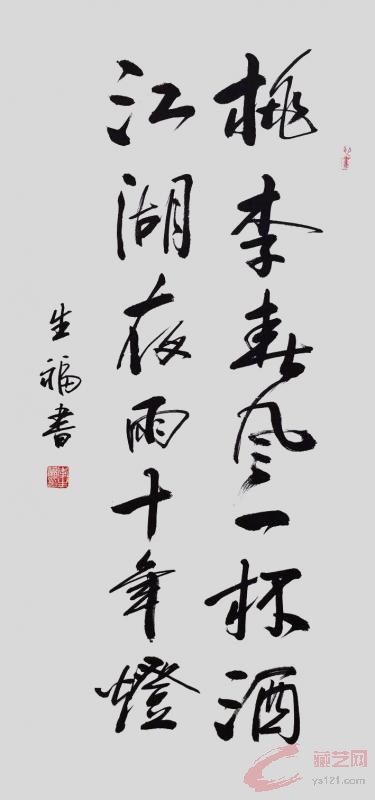 桃李春风一杯酒
江湖夜雨十年燈
生福書
藏艺网
ys121.com